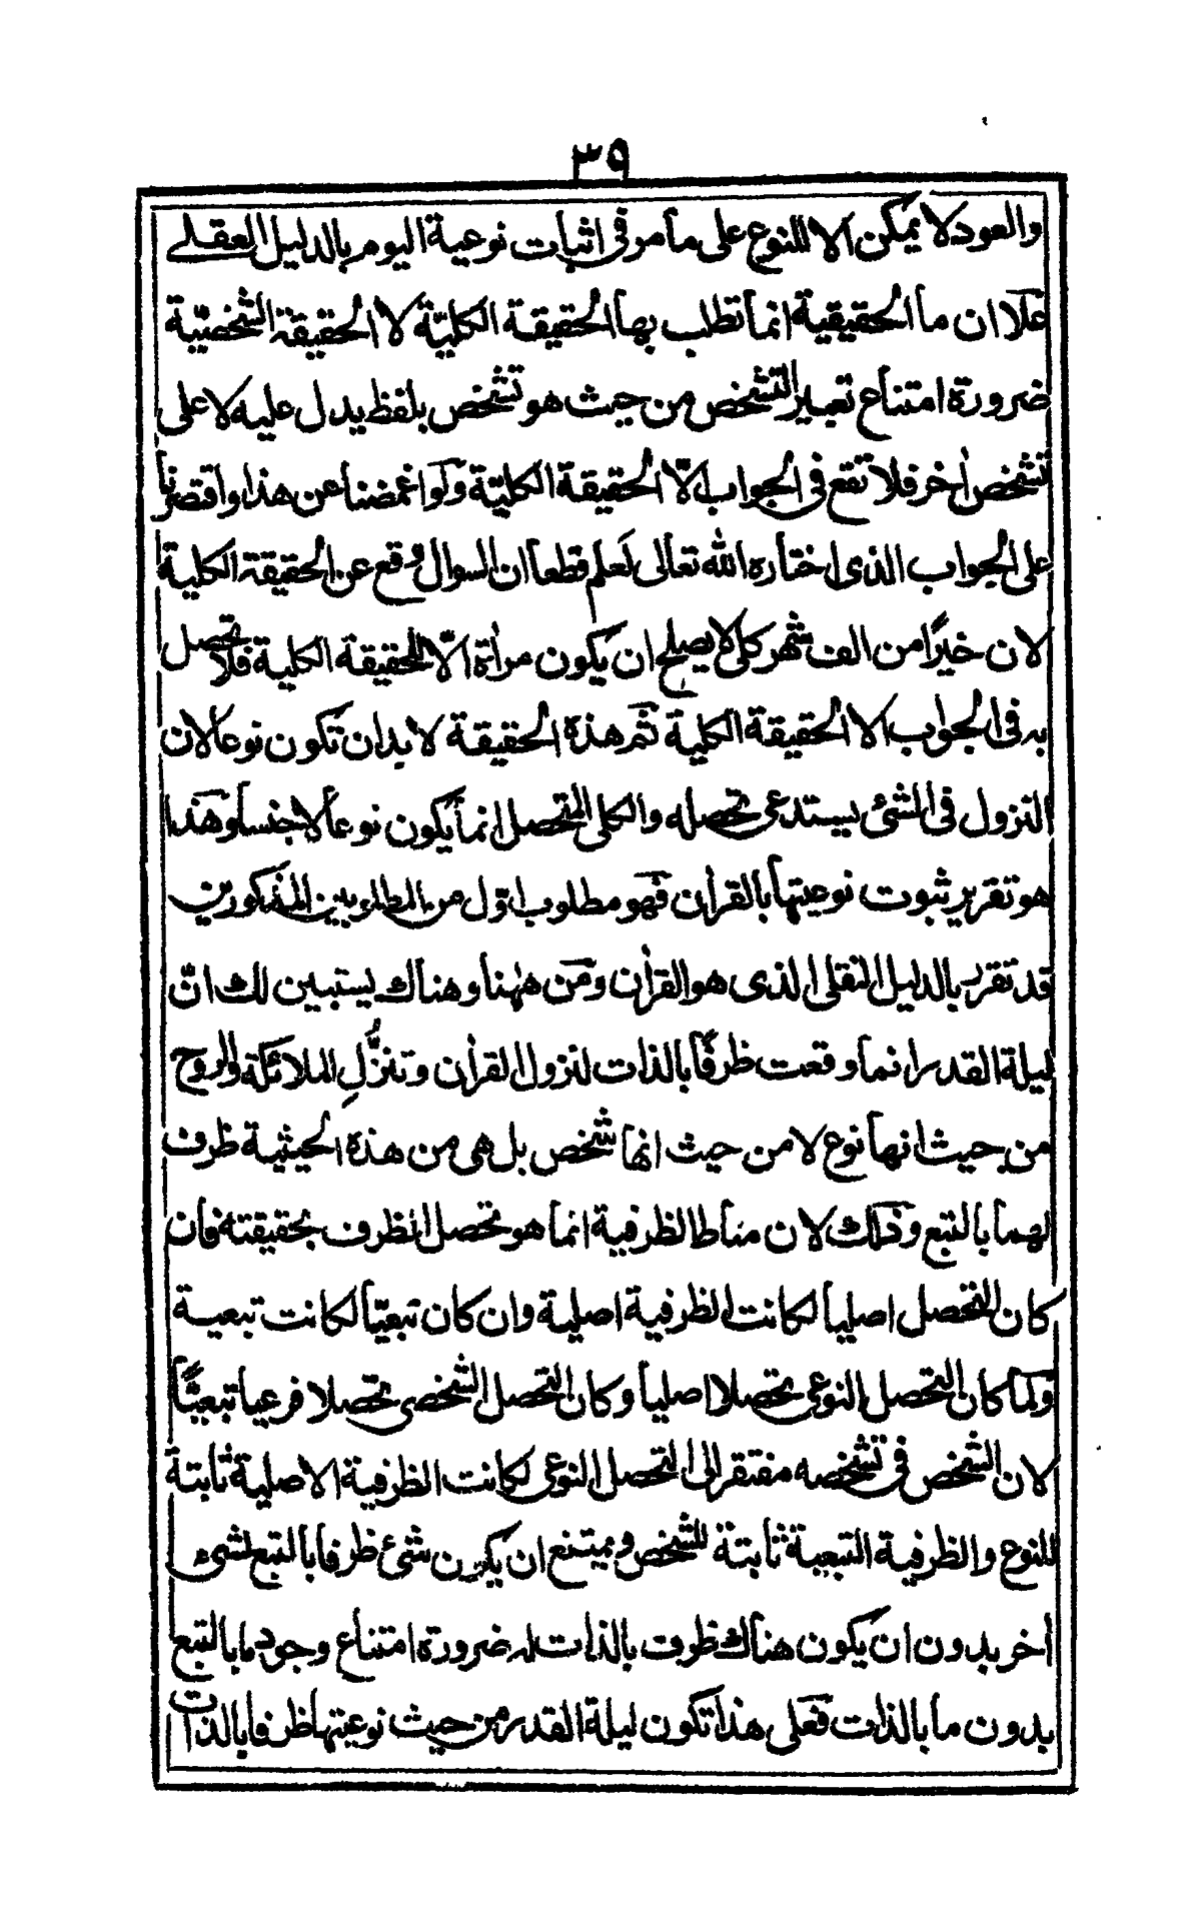 ٣٩
والعود لا يمكن الا للنوع على ما مر فى اثبات نوعية اليوم بالدليل العقلے
علا ان ما الحقيقية انما تطلب بها الحقيقة الكليّة لا الحقيقة الشخصيّة
ضرورة امتناع تعبير التشخص من حيث هو تشخص بلفظ يدل عليه لا على
تشخص اٰخر فلا تقع فى الجواب الّا الحقيقة الكليّة ولو اغمضنا عن هذا واقتصرنا
على الجواب الذى اختاره الله تعالى لعلم قطعا ان السوال وقع عن الحقيقة الكلية
لان خيرًا من الف شهر كلى لا يصلح ان يكون مراٰة الّا للحقيقة الكلية فلا تحصل
به فى الجواب الا الحقيقة الكلية ثم هذه الحقيقة لا بد ان تكون نوعا لان
النزول فى الشئ يستدعى تحصله والكلى المتحصل انما يكون نوعا لا جنسا وهذا
هو تقرير ثبوت نوعيتها بالقراٰن فهو مطلوب اوّل من المطلوبين المذكورين
قد تقرر بالدليل النقلى الذى هو القراٰن ومن هٰهنا وهناك يستبين لك انّ
ليلة القدر انما وقعت ظرفًا بالذات لنزول القراٰن وتنزُّلِ الملائكة والروح
من حيث انها نوع لا من حيث انها شخص بل هى من هذه الحيثية ظرف
لهما بالتبع وذلك لان مناط الظرفية انما هو تحصل الظرف بحقيقته فان
كان التحصل اصليا لكانت الظرفية اصلية وان كان تبعيّا لكانت تبعية
ولما كان التحصل النوعى تحصلا اصليا وكان التحصل الشخصى تحصلا فرعيا تبعيًّا
لان الشخص فى تشخصه مفتقر الى التحصل النوعى لكانت الظرفية الاصلية ثابتة
للنوع والظرفية التبعية ثابتة للشخص ويمتنع ان يكون شئ ظرفا بالتبع لشىء
اٰخر بدون ان يكون هناك ظرف بالذات له ضرورة امتناع وجود ما بالتبع
بدون ما بالذات فعلى هذا تكون ليلة القدر من حيث نوعيتها ظرفا بالذات